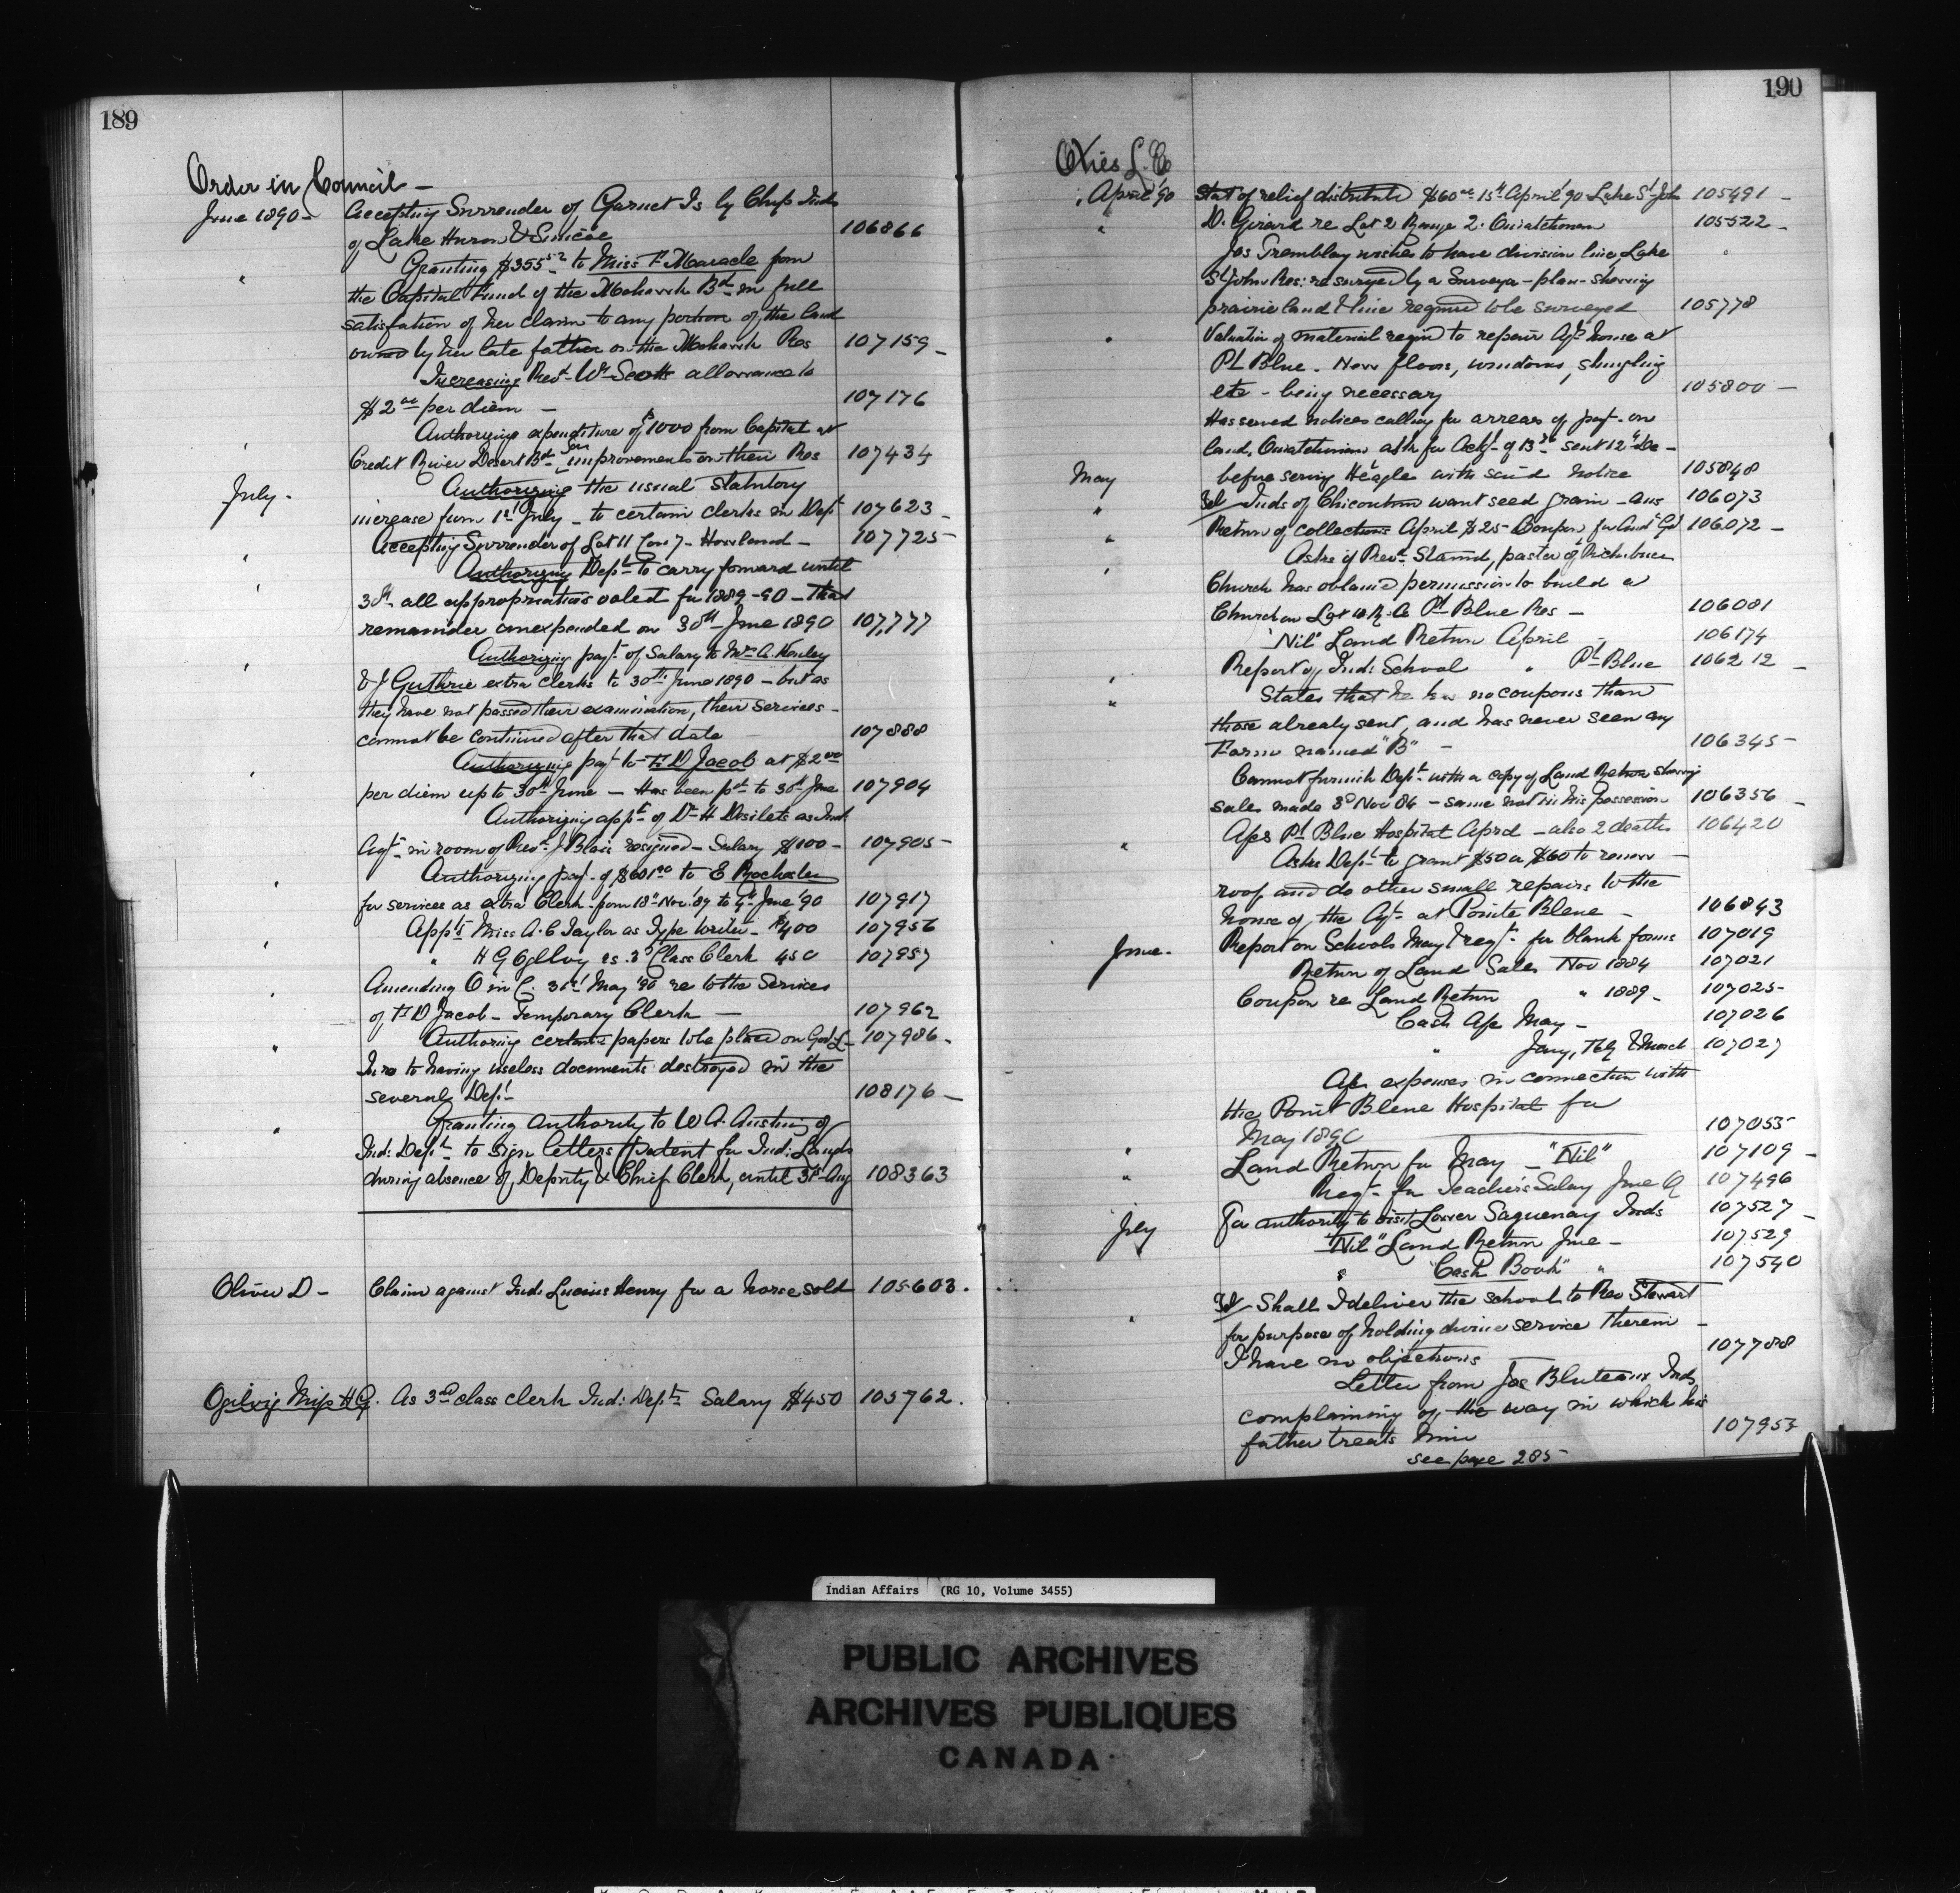 189
Order in Council —
June 1890 — Accepting Surrender of Garnet Is by Chip Inds
of Lake Huron & Simcoe 106866
" Granting $355 52 to Miss F Maracle from
the Capital Fund of the Mohawk Bd in full
satisfation of her claim to any portion of the land
owned by her late father on the Mohawk Res 107159 —
Increasing Revd Wm Scotts allowance to
$2 00 per diem — 107176
Authorizing expenditure of $1000 from Capital at
Credit River Desert Bd for improvements on their Res 107434
July - Authorizing the usual Statutory
increase from 1st July - to certain clerks in Dept 107623 —
" Accepting Surrender of Lot 11 Con 7 - Howland — 107725 —
" Authorizing Dept to carry forward until
30th all appropriations voted for 1889-90 — that
remainder unexpended on 30th June 1890 107,777
" Authorizing payt of Salary to Mrs A.
& J Guthrie extra clerks to 30th June 1890 — but as
they have not passed their examination, their services —
cannot be continued after that date 107888
" Authorizing payt to F D Jacob at $2 00
per diem up to 30th June — Has been pd to 30th June 107904
Authorizing appt of Dr H Desilets as Ind
Agt in room of Revd J Blais resigned — Salary $100 — 107905 —
" Authorizing payt of $601 to E Rochester
for services as extra Clerk from 18th Nov '89 to June '90 107917
Appts Miss A. C Taylor as Type Writer — $400 107956
" " H G Ogilvy as 3d Class Clerk 450 107957
" Amending O in C. 31st May '90 re to the Services
of F D Jacob — Temporary Clerk — 107962
" Authoring certain papers to be placed on 107986 —
In re to having useless documents destroyed in the
several Dept 108176 —
" Granting authority to W A. Austin of
Ind: Dept to sign letters patent for Ind: Lands
during absence of Deputy & Chief Clerk, until 31st Aug 108363
Oliver D — Claim against Ind: Lucius Henry for a horse sold 105603.
Ogilvig Miss H G. As 3rd class clerk Ind: Dept Salary $450 105762.
190
Otis L. E
April '90 Stat of relief distributed $60 00 15th April '90 Lake St John 105491 —
" D. Girard re Lot 2 Range 2. Ouiatchouan 105522 —
Jos Tremblay wishes to have division line, Lake
St John Res: re surveyed by a Surveyor - plan - showing
prairie land & line required to be surveyed 105778
" Valuation of material reqd to repair Agts house at
Pt Blue. New floors, windows, shingling
etc - being necessary 105800 —
Has served notices calling for arrears of payt on
land, Ouiatchouan asks for of sent 12th —
May before serving with said notice 105848
" Tel Inds of Chicoutimi want seed grain — ans 106073
" Return of collections April $25 - Coupon for Audr Gel 106072 —
" Asks if Revd pastor of
Church has obtained permission to build a
Church on Lot 10 R. A Pt Blue Res — 106081
"Nil" Land Return April — 106174
" Report of Ind: School " Pt Blue 106212 —
" States that he has no coupons than
those already sent, and has never seen any
Form named "B" — 106345 —
Cannot furnish Dept with a copy of Land Return showing
sales made 3d Nov 86 — same not in his possession 106356 —
" Apc Pt Blue Hospital April — also 2 deaths 106420
Asks Dept to grant $50 or $60 to renew —
roof and do other small repairs to the
house of the Agt at Pointe Bleue — 106843
June. Report on Schools May & reqt for blank forms 107019
Return of Land Sales Nov 1884 107021
Coupon re Land Return " 1889 — 107025 —
Cash Apc May — 107026
" Jany, Feb & March 107027
Apc expenses in connection with
the Point Bleue Hospital for
May 1890 107055
" Land Return for May — "Nil" 107109 —
" Reqt for Teachers Salary June Q 107496
July For authority to visit Lower Saguenay Inds 107527 —
"Nil" Land Return June — 107529
" "Cash Book" " 107540
" Tel Shall I deliver the school to Rev Stewart
for purpose of holding divine service therein —
I have no objections 107788
Letter from Jos Bluteaux Ind,
complaining of the way in which his
father treats him 107953
see page 285
Indian Affairs (RG 10, Volume 3455)
PUBLIC ARCHIVES
ARCHIVES PUBLIQUES
CANADA